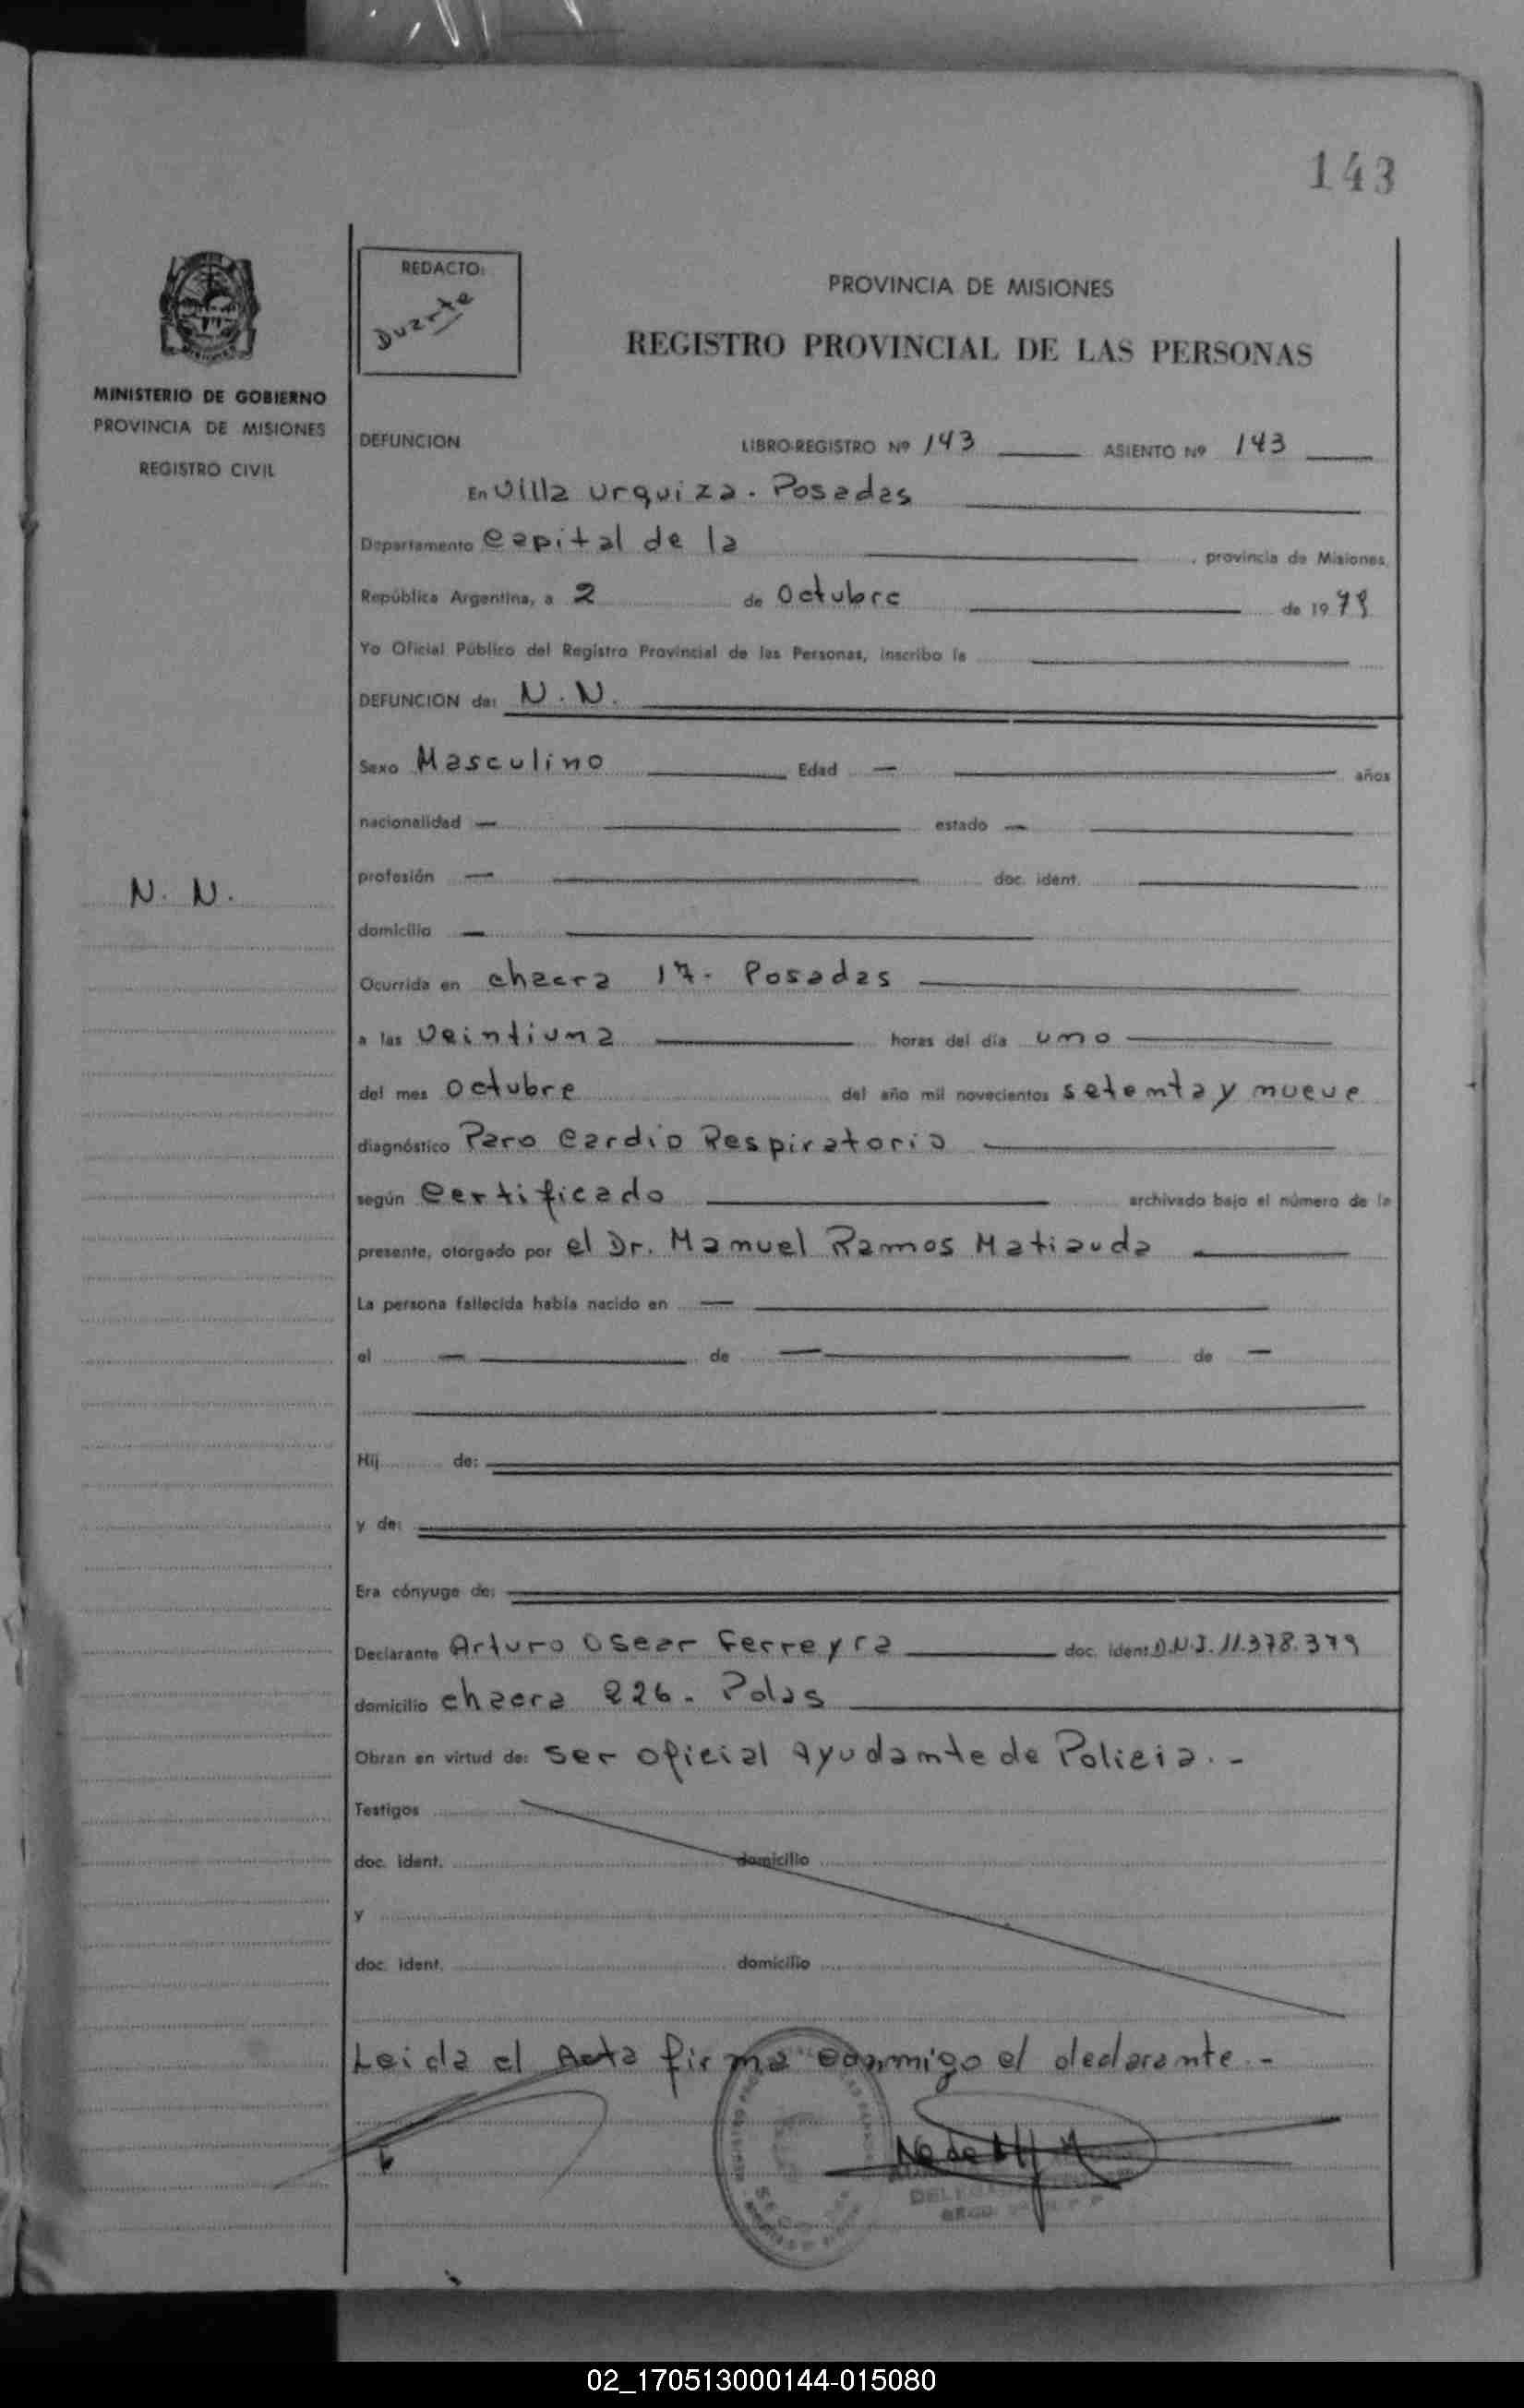 143
REDACTO:
Duarte
PROVINCIA DE MISIONES
REGISTRO PROVINCIAL DE LAS PERSONAS
MINISTERIO DE GOBIERNO
PROVINCIA DE MISIONES
REGISTRO CIVIL
DEFUNCION LIBRO-REGISTRO Nº 143 ASIENTO Nº 143
En Villa Urquiza. Posadas
Departamento Capital de la , provincia de Misiones,
República Argentina, a 2 de Octubre de 1979
Yo Oficial Público del Registro Provincial de las Personas, inscribo la
DEFUNCION de: N. N.
Sexo Masculino Edad — años
nacionalidad — estado —
N. N.
profesión — doc. ident.
domicilio —
Ocurrida en chacra 17. Posadas
a las veintiuna horas del día uno
del mes Octubre del año mil novecientos setenta y nueve
diagnóstico Paro Cardio Respiratorio
según Certificado archivado bajo el número de la
presente, otorgado por el Dr. Manuel Ramos Matiauda
La persona fallecida había nacido en —
el — de — de —
Hij de:
y de:
Era cónyuge de:
Declarante Arturo Oscar Ferreyra doc. ident. D.N.I. 11.378.379
domicilio chacra 226. Pdas
Obran en virtud de: ser oficial Ayudante de Policia.-
Testigos
doc. ident. domicilio
y
doc. ident. domicilio
Leida el Acta firma conmigo el declarante.-
02_170513000144-015080